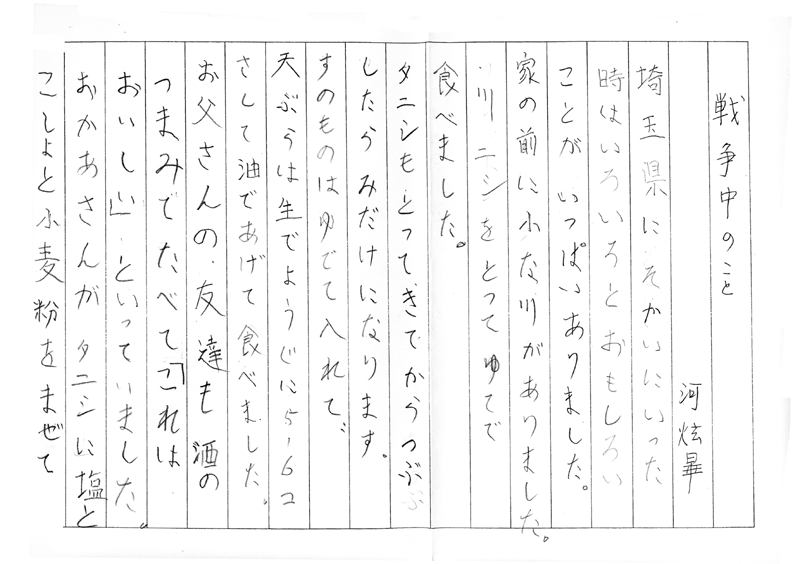 戦争中のこと
河炫畢
埼玉県にそかいにいった
時はいろいろとおもしろい
ことがいっぱいありました。
家の前に小な川がありました。
川ニシをとってゆてで
食べました。
タニシもとってきてからつぶ
したらみだけになります。
すのものはゆでて入れて、
天ぷらは生でようじに5-6コ
さして油であげて食べました。
お父さんの友達も酒の
つまみでたべて「これは
おいしい」といっていました。
おかあさんがタニシに塩と
こしょと小麦粉をまぜて